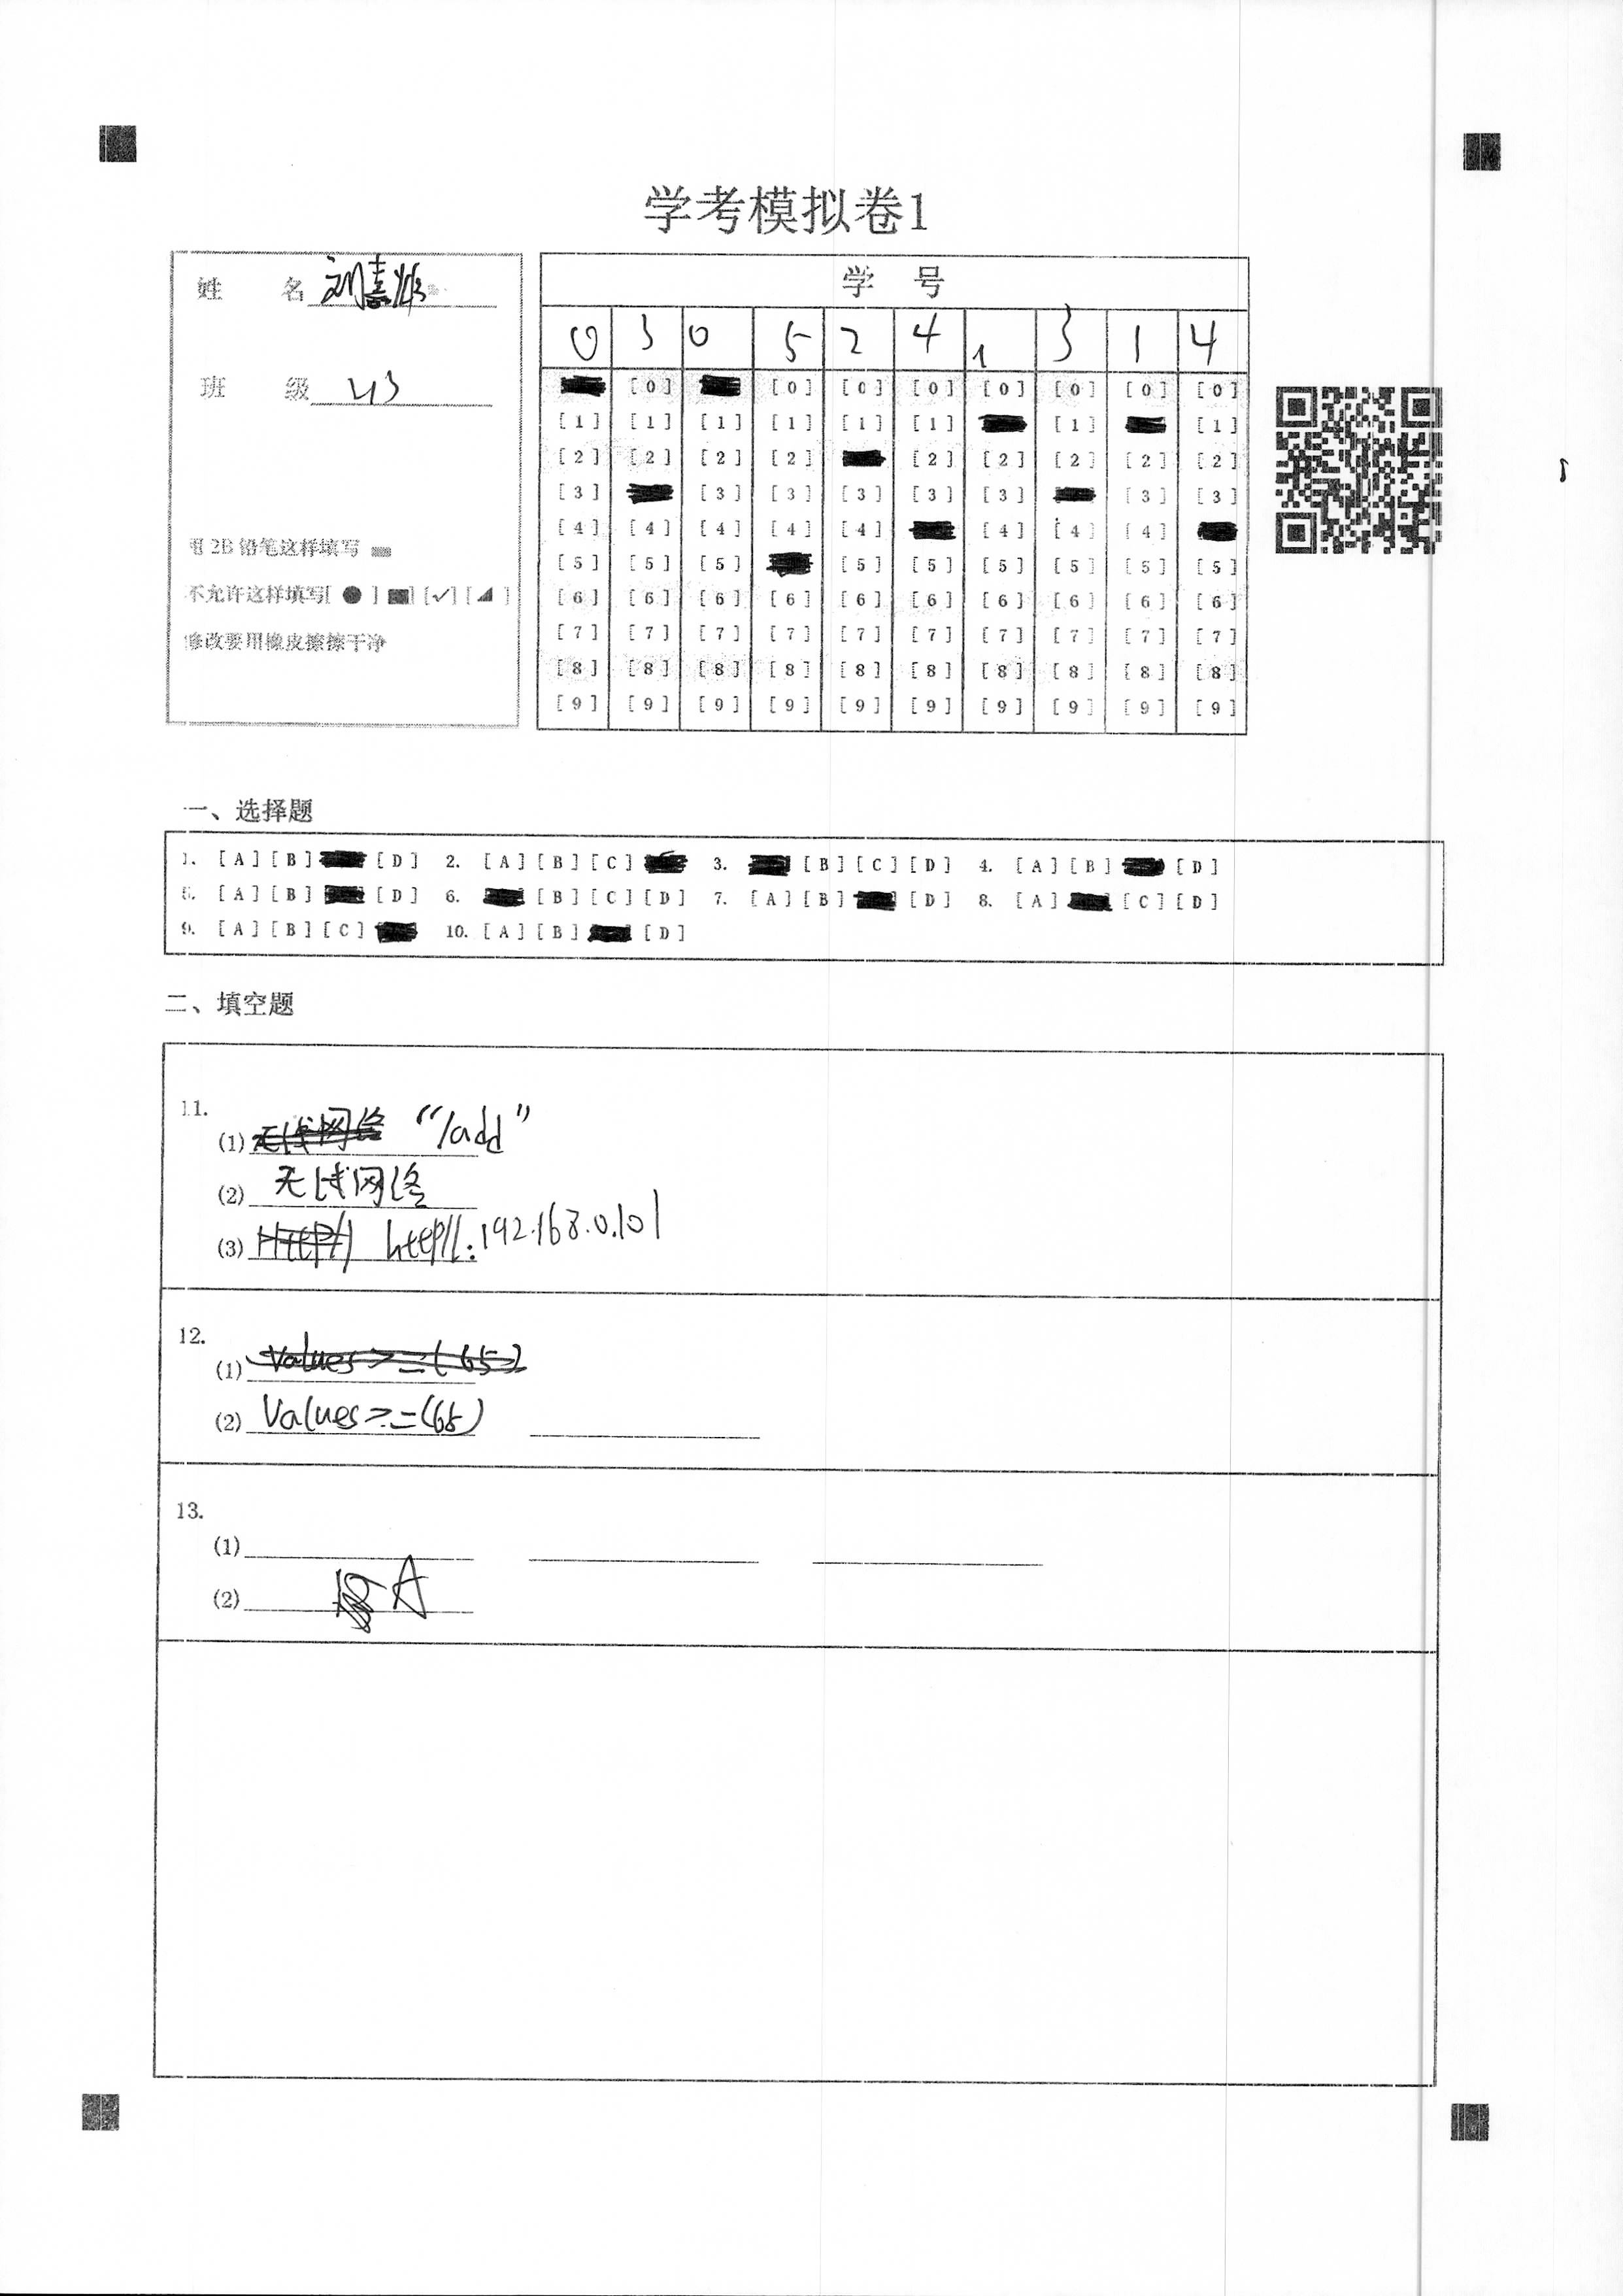 学考模拟卷1
姓 名 刘嘉
班 级 413
用2B铅笔这样填写
不允许这样填写[ ● ] [✓] [ ]
修改要用橡皮擦擦干净
学 号
0 3 0 5 2 4 1 3 1 4
[0] [0] [0] [0] [0] [0] [0] [0]
[1] [1] [1] [1] [1] [1] [1] [1]
[2] [2] [2] [2] [2] [2] [2] [2] [2]
[3] [3] [3] [3] [3] [3] [3] [3]
[4] [4] [4] [4] [4] [4] [4] [4]
[5] [5] [5] [5] [5] [5] [5] [5] [5]
[6] [6] [6] [6] [6] [6] [6] [6] [6] [6]
[7] [7] [7] [7] [7] [7] [7] [7] [7] [7]
[8] [8] [8] [8] [8] [8] [8] [8] [8] [8]
[9] [9] [9] [9] [9] [9] [9] [9] [9] [9]
一、选择题
1. [A] [B] [D] 2. [A] [B] [C] 3. [B] [C] [D] 4. [A] [B] [D]
5. [A] [B] [D] 6. [B] [C] [D] 7. [A] [B] [D] 8. [A] [C] [D]
9. [A] [B] [C] 10. [A] [B] [D]
二、填空题
11.
(1) 无线网络 “/add”
(2) 无线网络
(3) Http// http//:192.168.0.101
12.
(1) Values>=(65)
(2) Values>=(65)
13.
(1)
(2) A